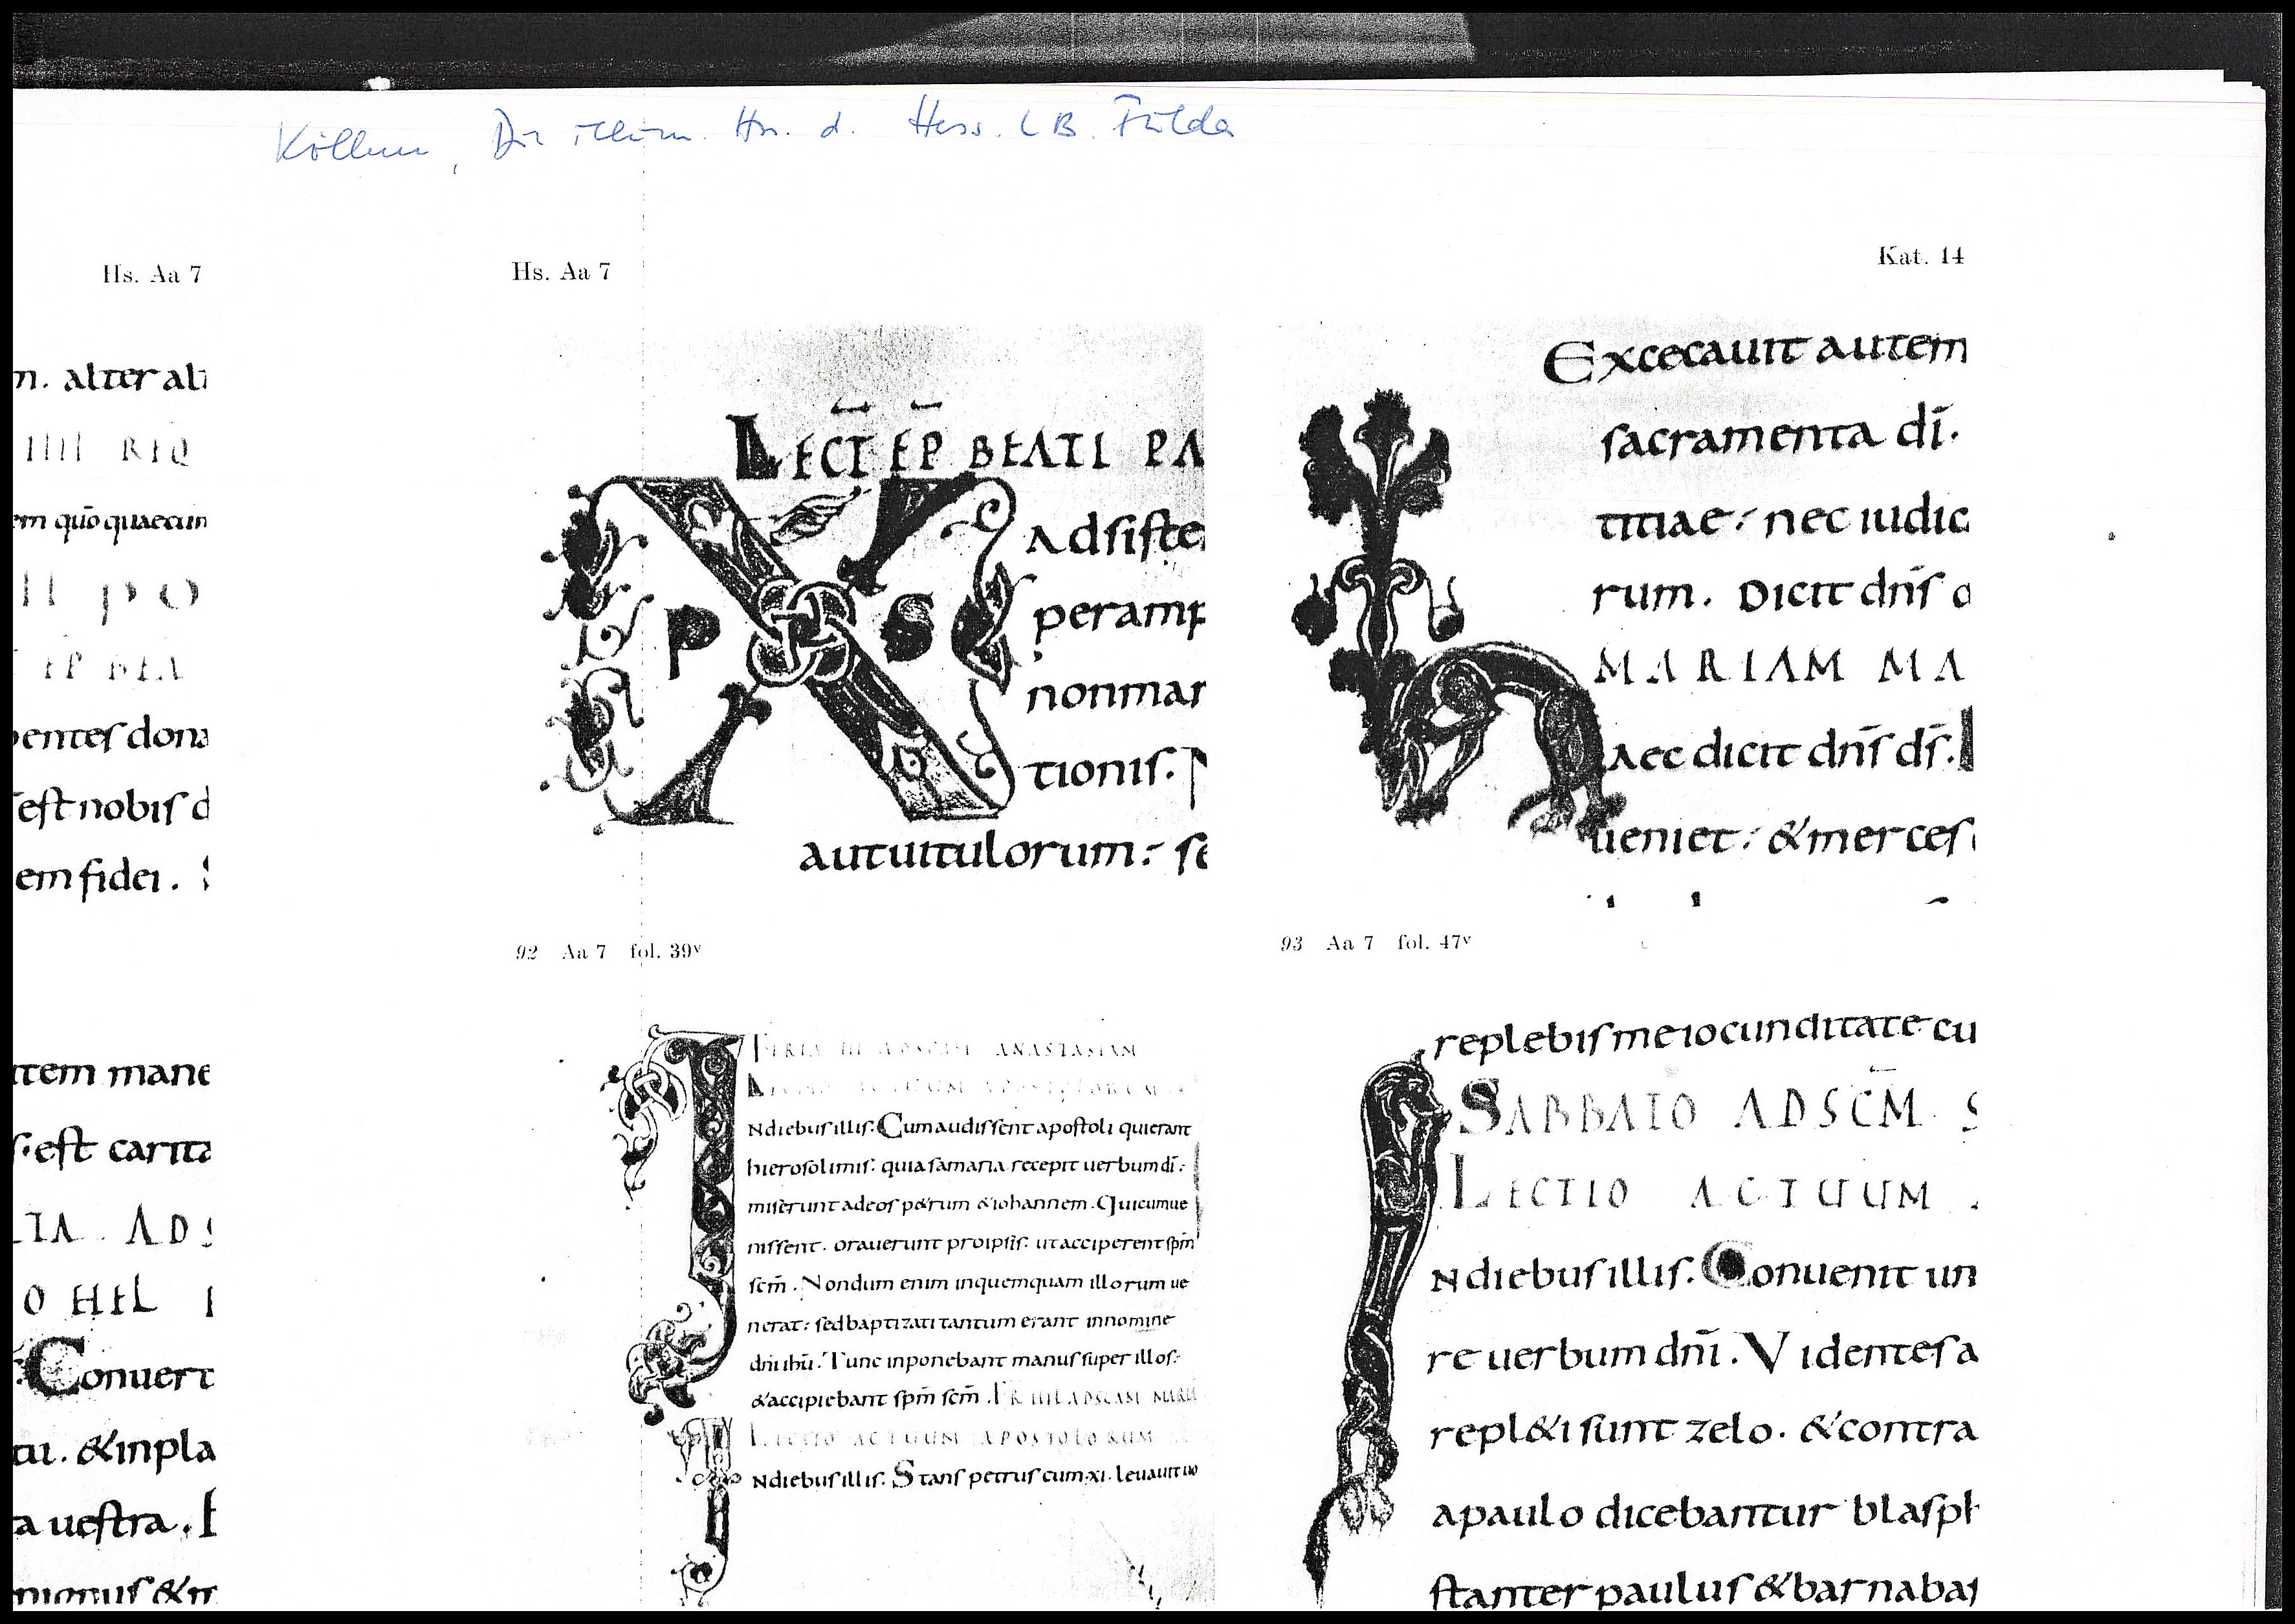 Köllner, Die illum. Hss. d. Hess. LB. Fulda
Hs. Aa 7
m. alter ali
IIII
em quo quaecun
II PO
EP BEA
bentes dona
est nobis d
em fidei.
item mane
s. est carita
IA ADS
O HEL
Conuert
tu. & inpla
a uestra.
Hs. Aa 7
Kat. 14
LECT EP BEATI PA
X P S
adsiste
peramp
nonman
tionis.
autuitulorum: se
92 Aa 7 fol. 39v
Excecauit autem
sacramenta dī.
titiae: nec iudic
rum. Dicit dn̄s
MARIAM MA
haec dicit dn̄s d̄s.
ueniet: & merces
93 Aa 7 fol. 47v
FERIA III ADSCAM ANASTASIAM
LECTIO ACTUUM APOSTOLORUM
I Ndiebus illis. Cum audissent apostoli qui erant
hierosolimis: quia samaria recepit uerbum dī:
miserunt ad eos p&rum & iohannem. Qui cum ue
nissent. orauerunt pro ipsis: ut acciperent sp̄m
sc̄m. Nondum enim in quemquam illorum ue
nerat: sed baptizati tantum erant in nomine
dn̄i ih̄u. Tunc inponebant manus super illos:
& accipiebant sp̄m sc̄m. FR IIII ADSCAM MARIA
LECTIO ACTUUM APOSTOLORUM
Ndiebus illis. Stans petrus cum xi. leuauit uo
replebis me iocunditate cu
SABBATO ADSCM S
LECTIO ACTUUM
I Ndiebus illis. Conuenit un
re uerbum dn̄i. Videntes a
repl&i sunt zelo. & contra
a paulo dicebantur blasph
stanter paulus & barnabas